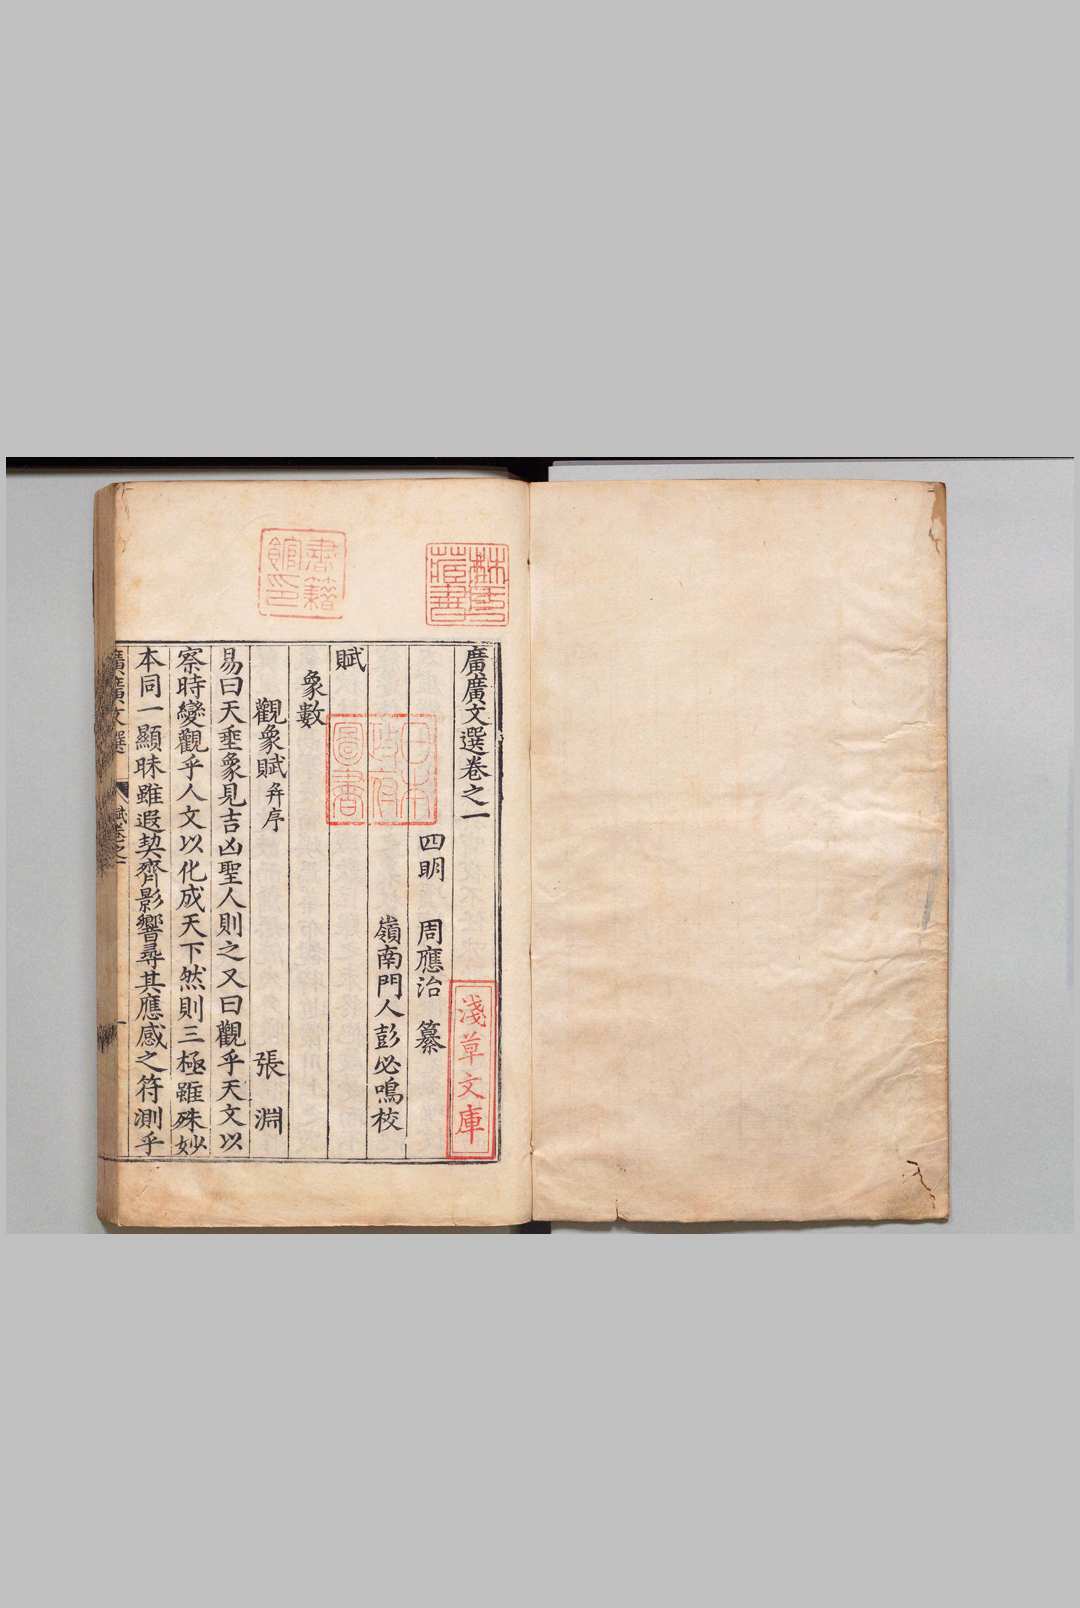 廣廣文選卷之一
四明 周應治 纂
嶺南門人彭必鳴校
賦
象數
觀象賦 并序 張 淵
易曰天垂象見吉凶聖人則之又曰觀乎天文以
察時變觀乎人文以化成天下然則三極雖殊妙
本同一顯昧雖遐契齊影響尋其應感之符測乎
廣廣文選 賦卷之一 一
林氏藏書
書籍館印
日本政府圖書
淺草文庫